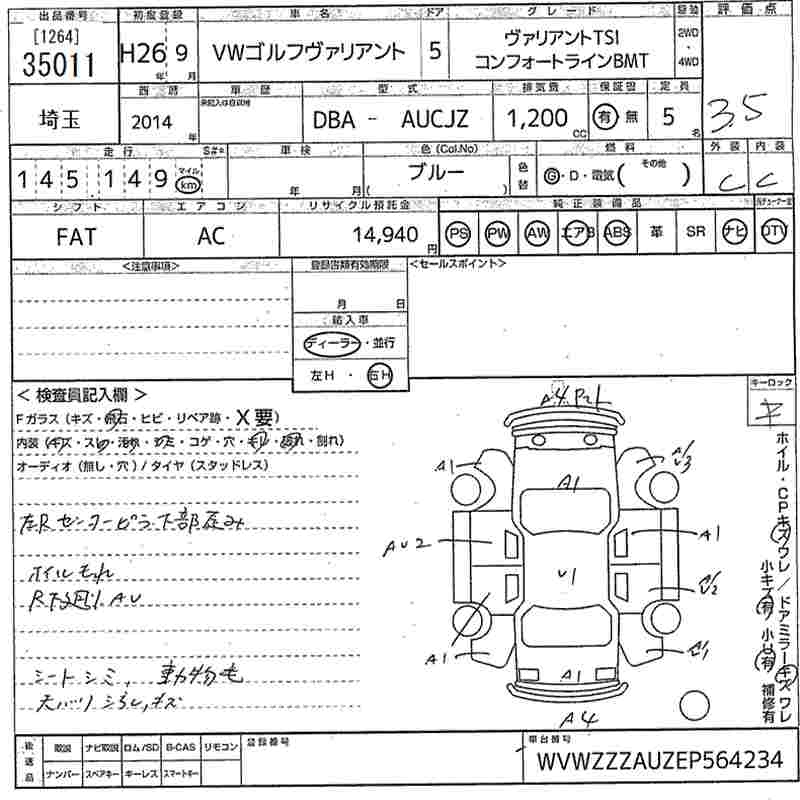 出品番号 初度登録 車名 ドア グレード 駆動 評価点
[1264]
35011 H26年 9月 VWゴルフヴァリアント 5 ヴァリアントTSI コンフォートラインBMT 2WD・4WD
西暦 車歴 型式 排気量 保証書 定員
埼玉 2014年 未記入は自家用 DBA - AUCJZ 1,200CC 有 無 5名 3.5
走行 S#* 車検 色(Col.No) 燃料 外装 内装
145,149 マイル km 年 月 ブルー ( ) 色替 G・D・電気( その他 ) C C
シフト エアコン リサイクル預託金 純正装備品
FAT AC 14,940円 PS PW AW エアB ABS 革 SR ナビ DTV
<注意事項> 登録書類有効期限 <セールスポイント>
月 日
輸入車
ディーラー・並行
左H ・ 右H
<検査員記入欄> キーロック
Fガラス(キズ・飛石・ヒビ・リペア跡・X要)
内装(キズ・スレ・汚れ・シミ・コゲ・穴・キレ・破れ・割れ)
オーディオ(無し・穴)/タイヤ(スタッドレス)
左Rセンターピラー下部歪み
R下廻り AU
シートシミ、動物毛
A4
A1
A1
A1
AU2
A1
U1
A1
A1
A4
ホイル・CPキズワレ/ドアミラーキズワレ
小キズ有 小U有 補修有
後送品 取説 ナビ取説 ロム/SD B-CAS リモコン 登録番号 車台番号
ナンバー スペアキー キーレス スマートキー WVWZZZAUZEP564234